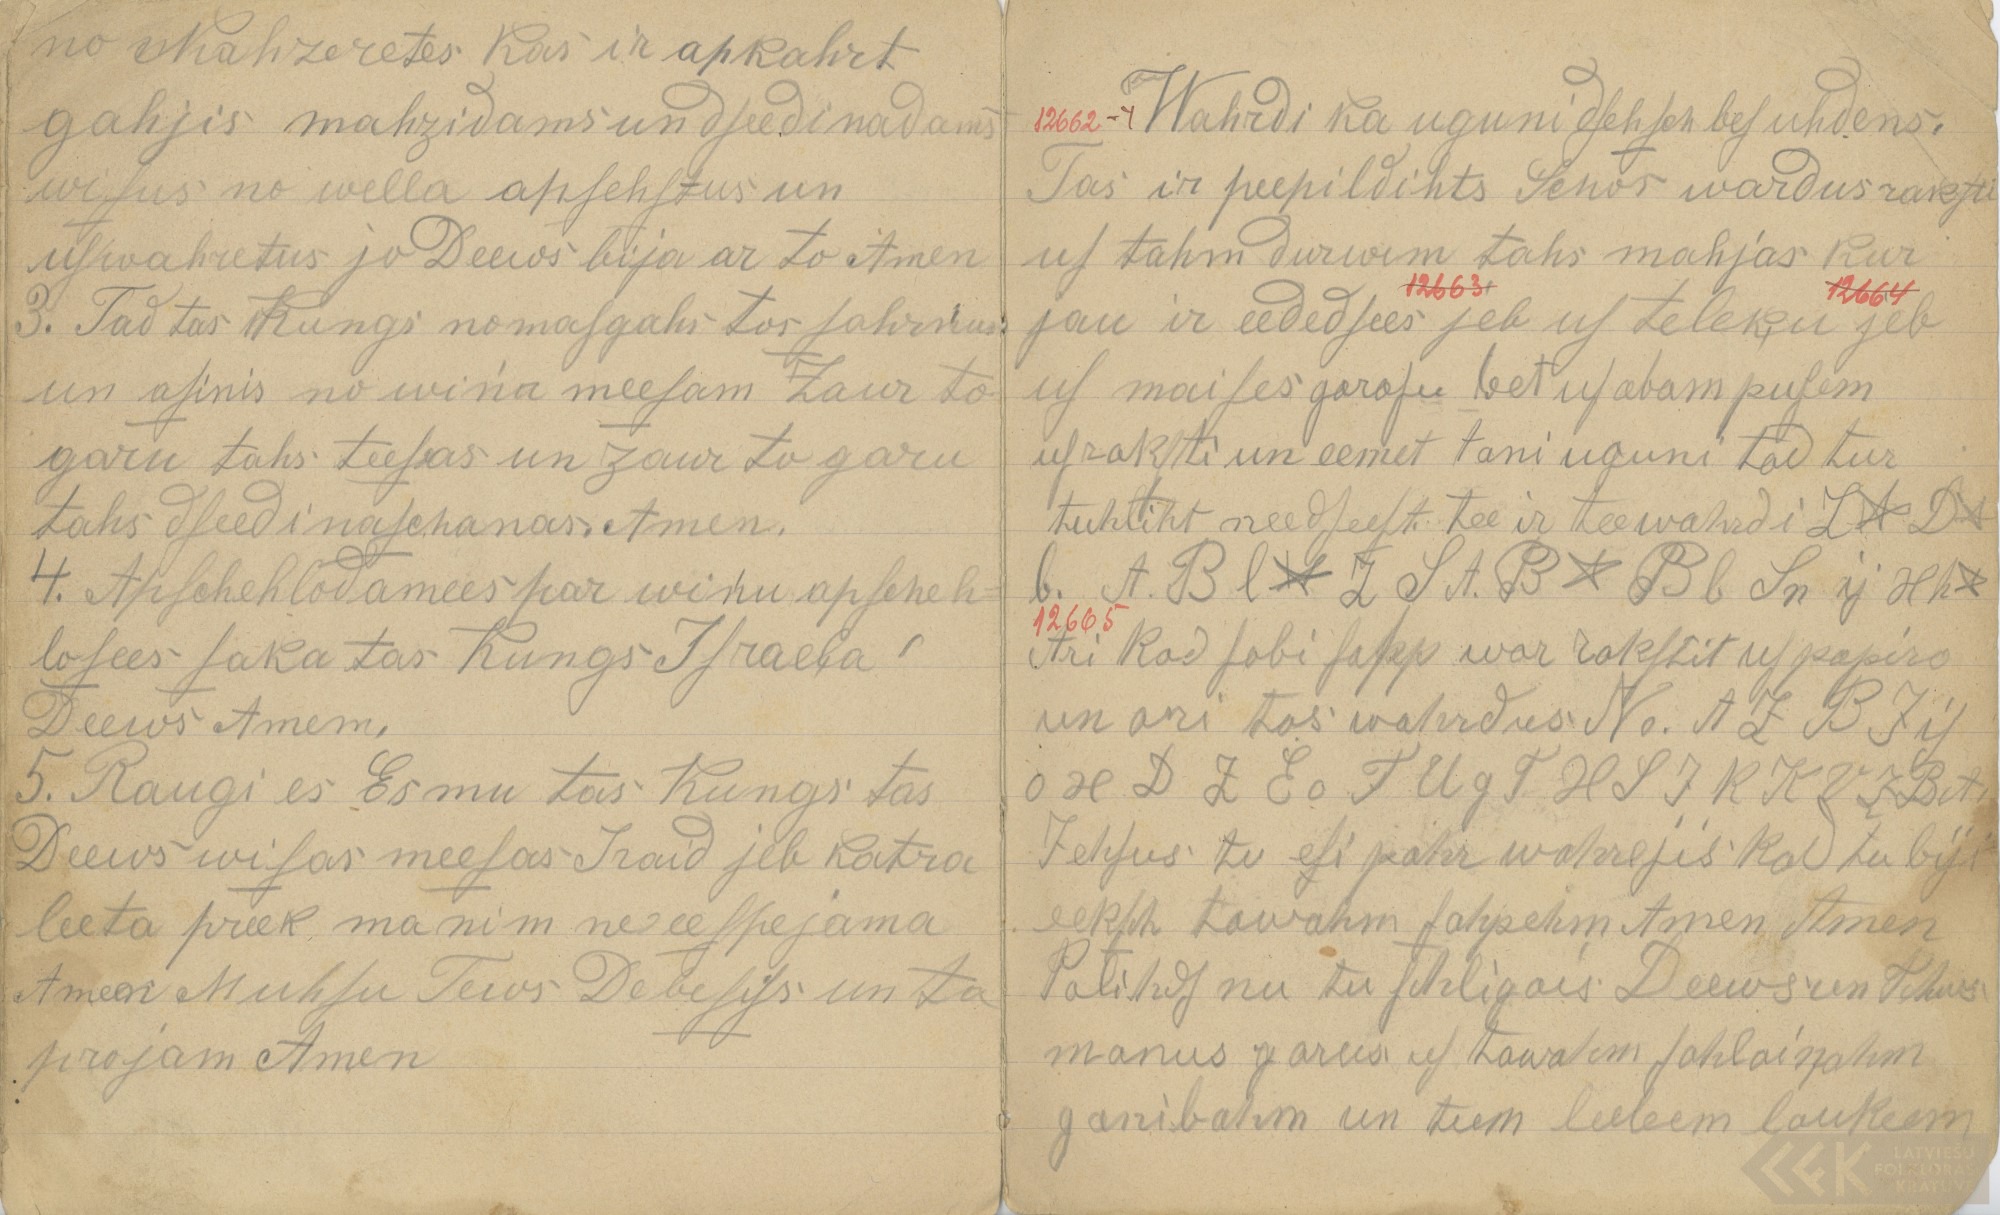 no Nahzeretes kas ir apkahrt
gahjis mahzidams un dseedinadams
wisus no wella apsehstus un
uswahretus jo Deews bija ar to Amen
3. Tad tas Kungs nomasgahs tos sahrnus
un asinis no wiņa meesam Zaur to
garu tahs teesas un zaur to garu
tahs dseedinaschanas. Amen.
4. Apschehlodamees par wiņu apscheh-
losees saka tas Kungs Israeļa
Deews Amem.
5. Raugi es Esmu tas Kungs tas
Deews wisas meesas Iraid jeb katra
leeta preek manim neeespejama
Amen Muhsu Tews Debesiss un ta
projam Amen
12662-4 Wahrdi ka uguni dsehsch bes uhdens.
Tas ir peepildihts Schos wardus raksti
us tahm durwim tahs mahjas kur
12663 12664
jau ir eededsees jeb us teleķu jeb
us maises garosu bet us abam pusem
usraksti un eemet tani uguni tad tur
tuhliht needseest. tee ir tee wahrdi Z D
b. A. B l Z S A. B B b Sn ij H h
12665
Ari kad sobi sahp war rakstit us papiro
un ari tos wahrdus No. A Z B J ij
o H D Z E o F U g T. H S J K K V Z B A.
Jehsus tu esi pahr wahrejis kad tu biji
eeksch tawahm sahpehm Amen Amen
Patihds nu tu schligais Deews un Tehws
manus garus us tawahm sahlainahm
ganibahm un teem leeleem laukeem
LATVIEŠU
FOLKLORAS
KRĀTUVE